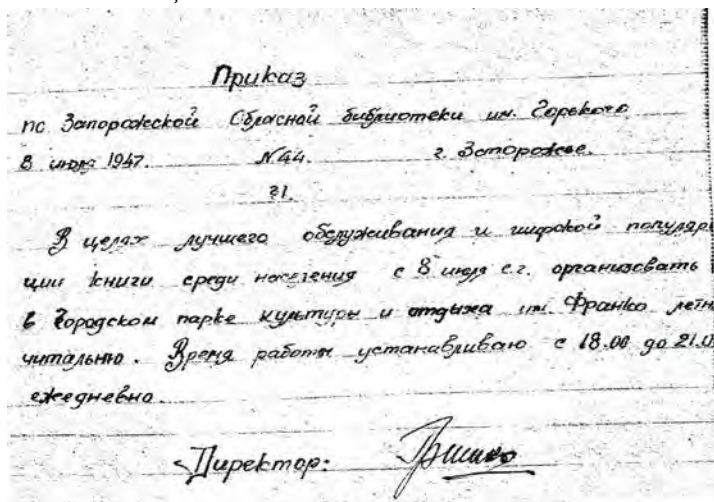 Приказ
по Запорожской Областной библиотеки им. Горького
8 июля 1947. N44. г. Запорожье.
§1.
В целях лучшего обслуживания и широкой популяри
ции книги среди населения с 8 июля с.г. организовать
в Городском парке культуры и отдыха им. Франко летн
читальню. Время работы устанавливаю с 18.00 до 21.0
ежедневно.
Директор: